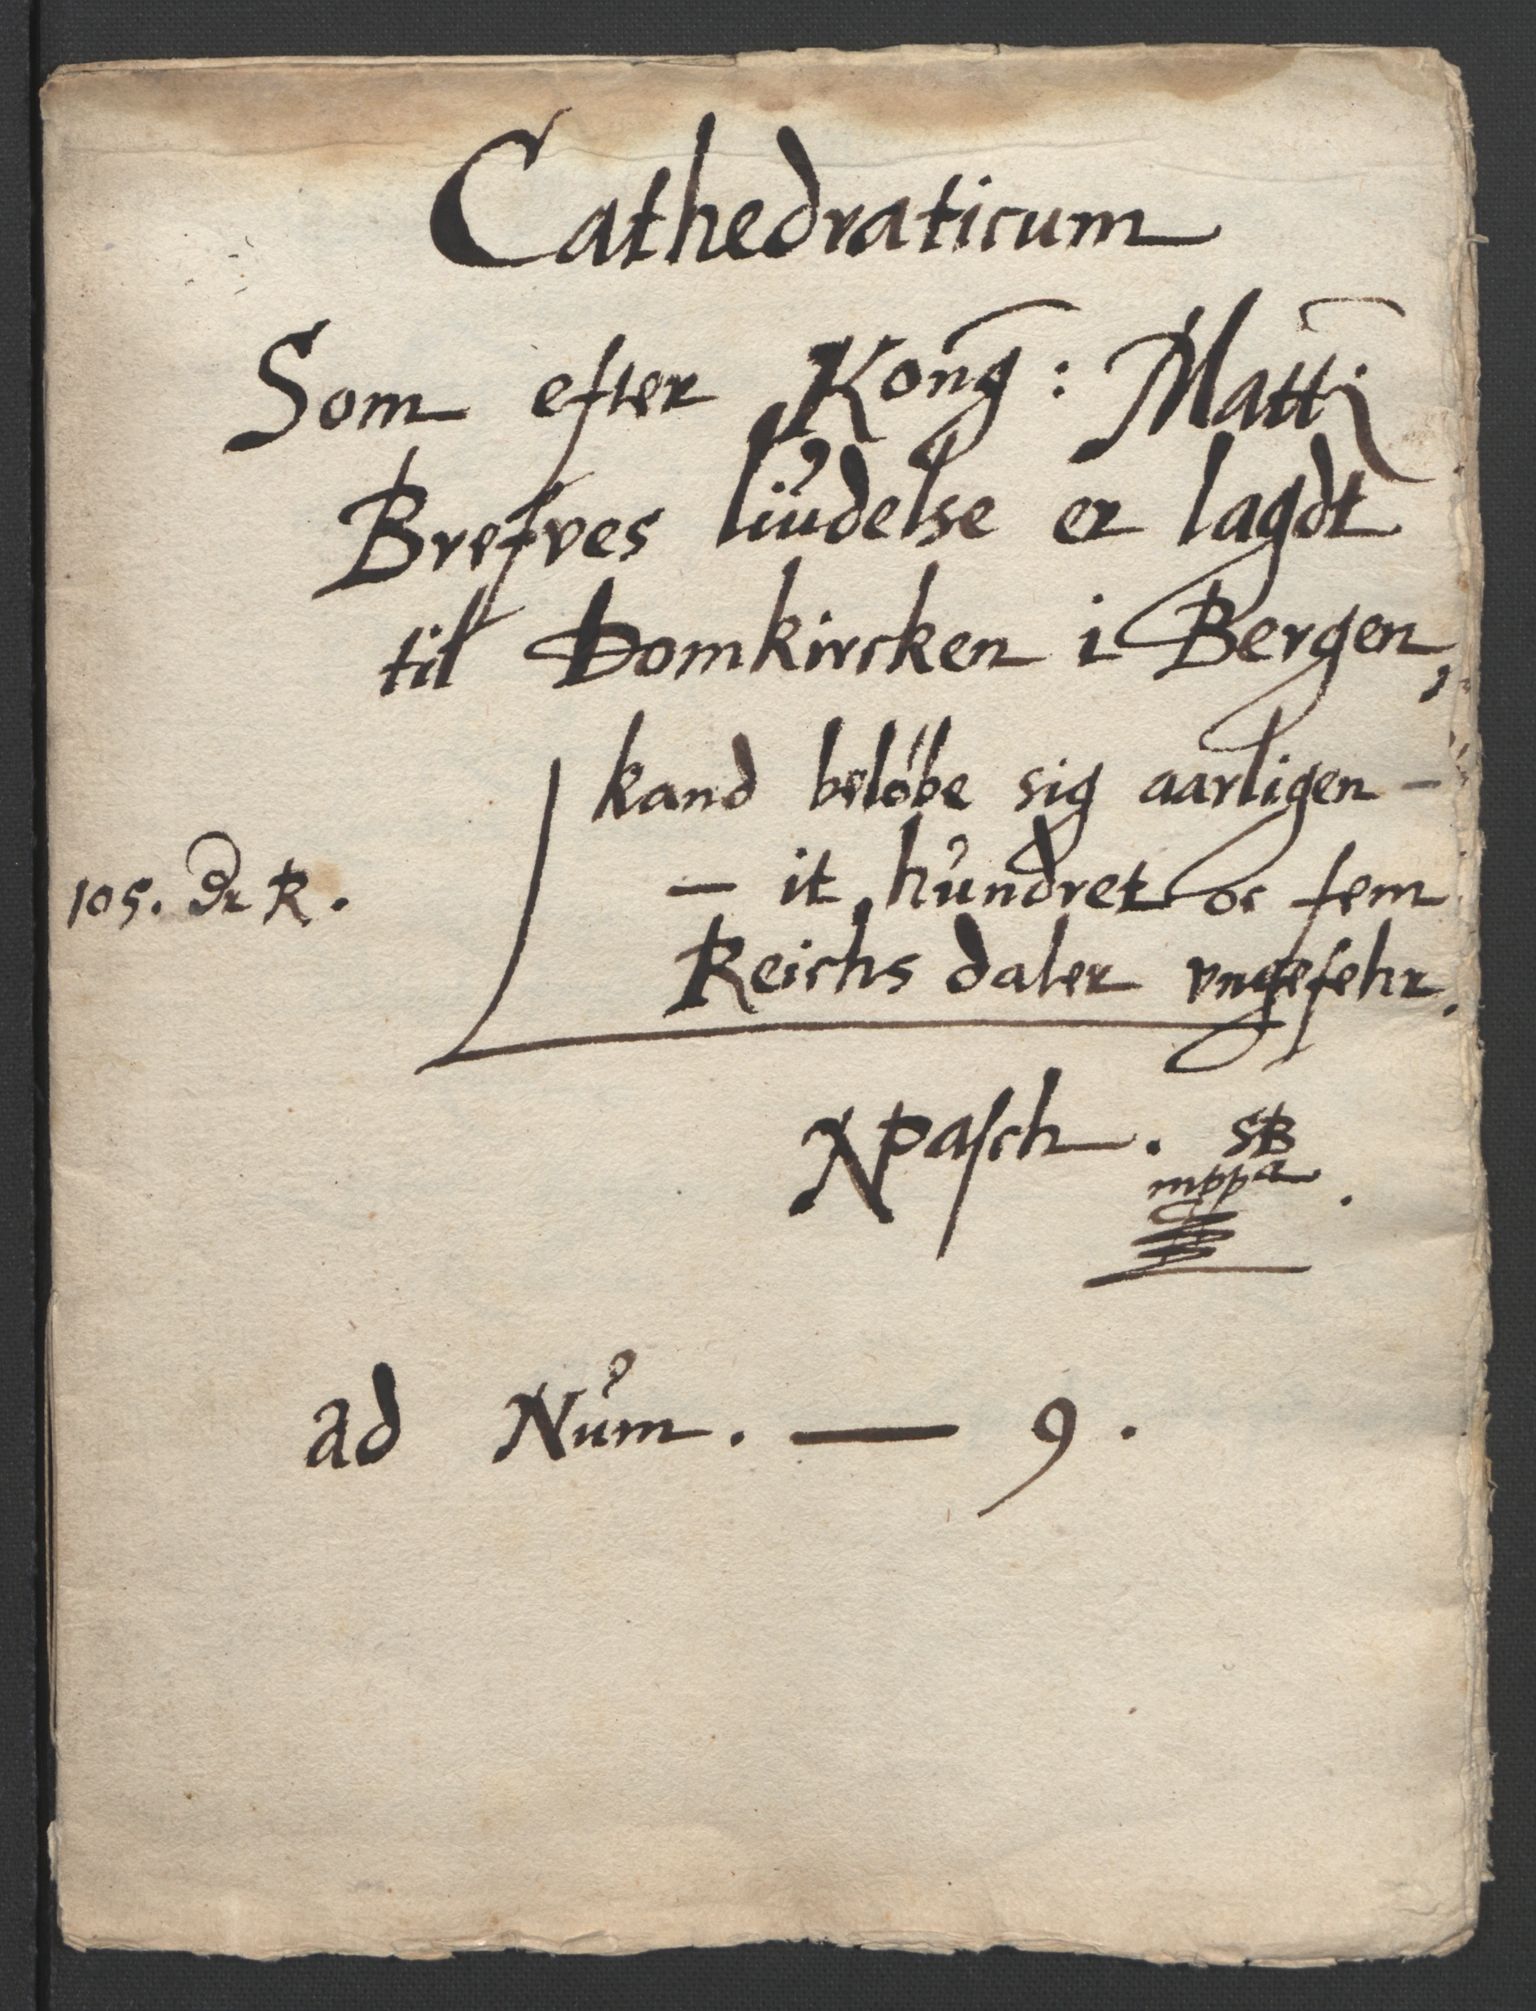 Cathedraticum
Som efter Kong: Matti
Brefves liudelse er lagdt
til Domkircken i Bergen,
kand belöbe sig aarligen —
105. Dr R. — it hundret oc fem
Reichs daler vngefehr.
NPasch. SB
mppa.
ad Num. — 9.